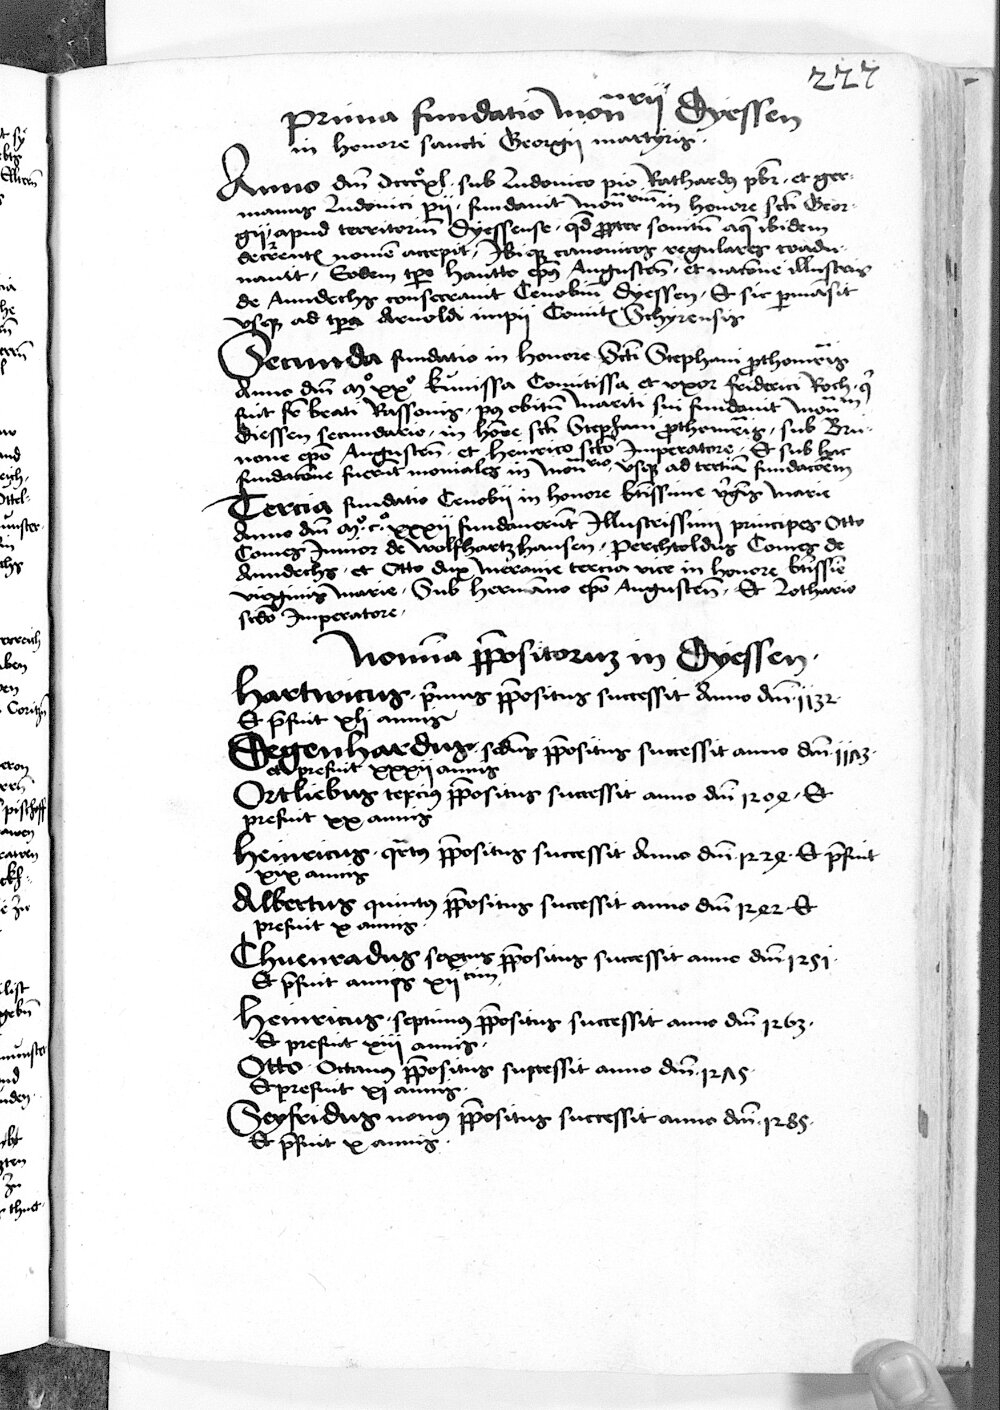 227
Prima fundatio Mon̄rii Dyessen
in honore sancti Georgij martyris.
Anno dn̄i dcccºxl. sub Ludovico pio Rathardꝰ pb̄r. et ger-
manus Ludovici pij, fundavit mon̄rium in honore scti Geor-
gij, apud territoriū Dyessense, qd̄ propter sonitū aq̄ ibidem
decurrentꝭ nomē accepit, Ibiqꝫ canonicos regulares coadu-
navit, Eodem tp̄e Hantto ep̄us Augusten̄, et nacōne illustris
de Anndechs consecravit Cenobiū Dyessen, Et sic p̄mansit
vsqꝫ ad tp̄a Arnoldi impij Comitꝭ Schyrensis
Secunda fundatio in honore Scti Stephani prothomr̄is
Anno dn̄i Mº xxº Kunissa Comitissa et vxor friderici Roch. q̄
fuit beati Rassonis, pꝰ obitū mariti sui fundavit mon̄m
diessen secundario, in hōre scti Stephani prothomr̄is, sub Bru-
none ep̄o Augusten̄, et Henrico scdo Imperatore, Et sub hac
fundacōne fuerūt moniales in mon̄rio, vsqꝫ ad terciā fundacōem
Tercia fundatio Cenobij in honore bt̄issime v̄gīs Marie
Anno dn̄i Mº.cº. xxxij fundaverūt Illustrissimi principes Otto
Comes Junior de Wolfhartzhausen, Perchtoldus Comes de
Anndechs, et Otto dux Meranie tercia vice in honore bt̄issīe
virginis Marie, Sub Hermāno ep̄o Augusten̄, Et Lothario
scdo Imperatore.
Nomīa p̄positorum in Dyessen.
Hartwicus. p̄imus p̄positus successit Anno dn̄i. 1132.
Et p̄fuit xlj annis
Gegenhardus. scdus p̄positus successit anno dn̄i. 1173.
et prefuit xxxij annis
Ortliebus tercius p̄positus successit anno dn̄i 1204. Et
prefuit xx annis
Heinricus. qr̄tꝰ p̄positus successit Anno dn̄i. 1224. Et p̄fuit
xix annis
Albertus quintꝰ p̄positus successit anno dn̄i 1242. Et
prefuit x annis.
Chuenradus sextus p̄positus successit anno dn̄i 1251.
Et p̄fuit annis xij
Heinricus. septimꝰ p̄positus successit anno dn̄i 1263.
Et prefuit xiij annis.
Otto. Octauꝰ p̄positus successit anno dn̄i. 1275.
Et prefuit xj annis.
Seyfridus nonꝰ p̄positus successit anno dn̄i. 1285.
Et p̄fuit x annis.